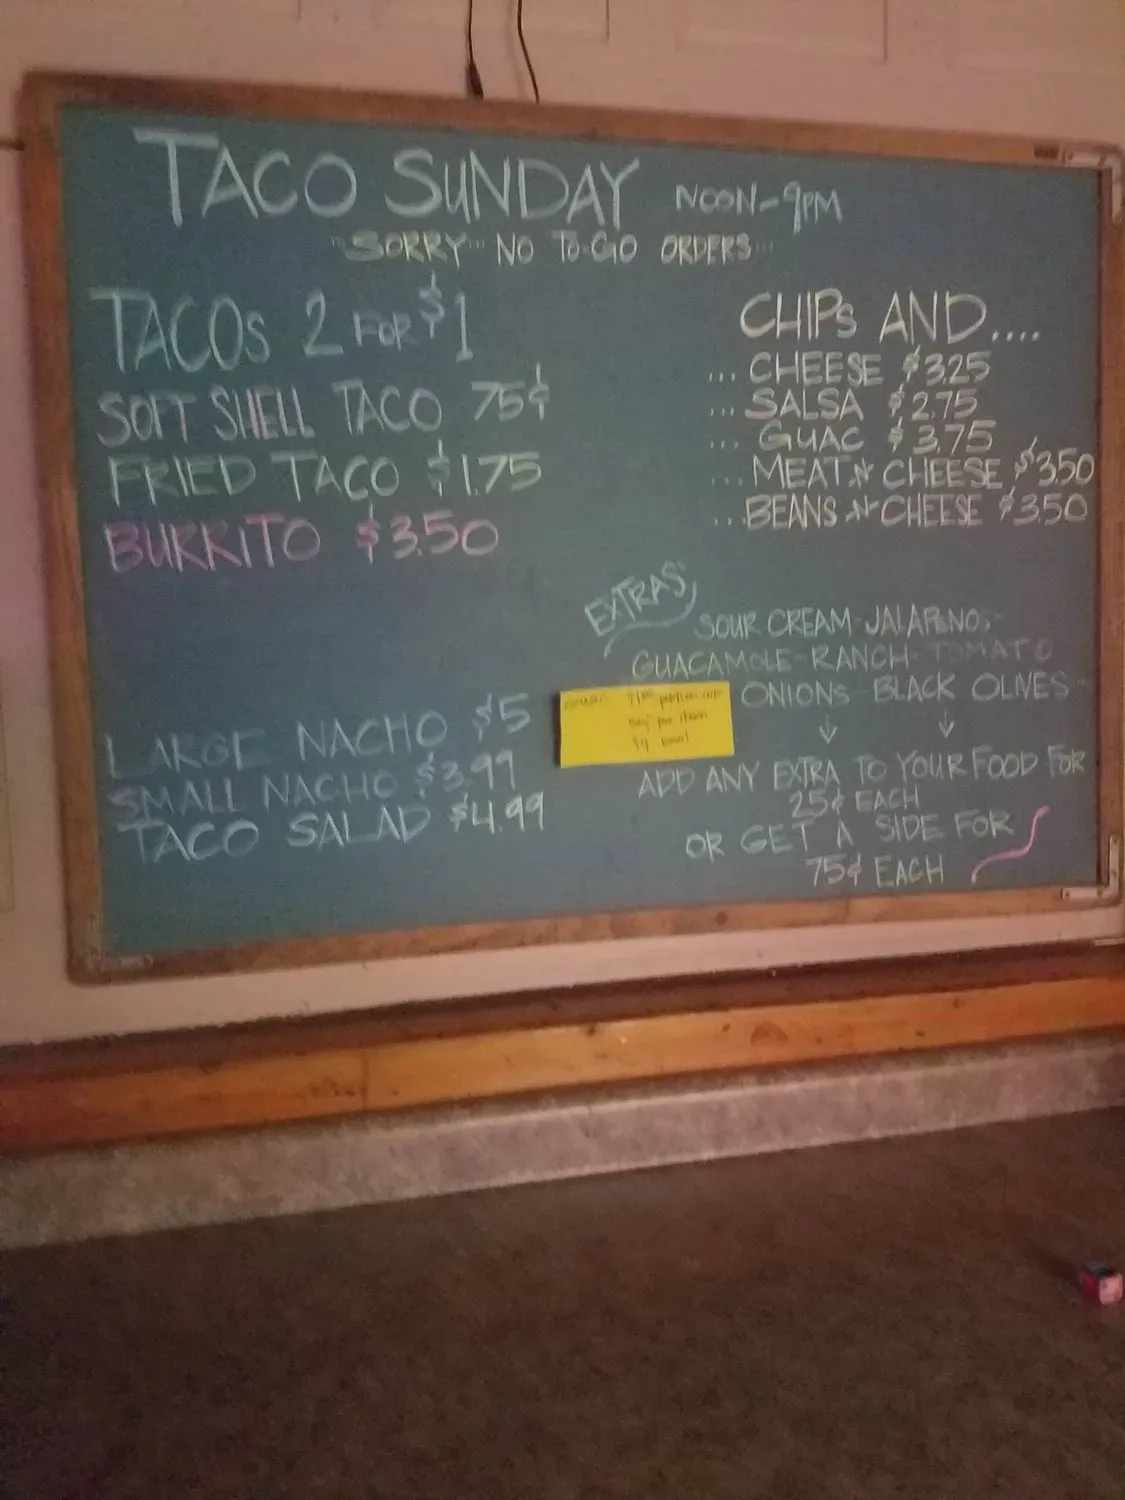 TACO SUNDAY NOON-9PM
"SORRY" NO TO-GO ORDERS...
TACOS 2 FOR $1
SOFT SHELL TACO 75¢
FRIED TACO $1.75
BURRITO $3.50
LARGE NACHO $5
SMALL NACHO $3.99
TACO SALAD $4.99
CHIPS AND....
... CHEESE $3.25
... SALSA $2.75
... GUAC $3.75
... MEAT N CHEESE $3.50
... BEANS N CHEESE $3.50
EXTRAS:
SOUR CREAM-JALAPENO-
GUACAMOLE-RANCH-TOMATO
ONIONS-BLACK OLIVES-
portion cup
per item
$4 bowl
ADD ANY EXTRA TO YOUR FOOD FOR
25¢ EACH
OR GET A SIDE FOR
75¢ EACH